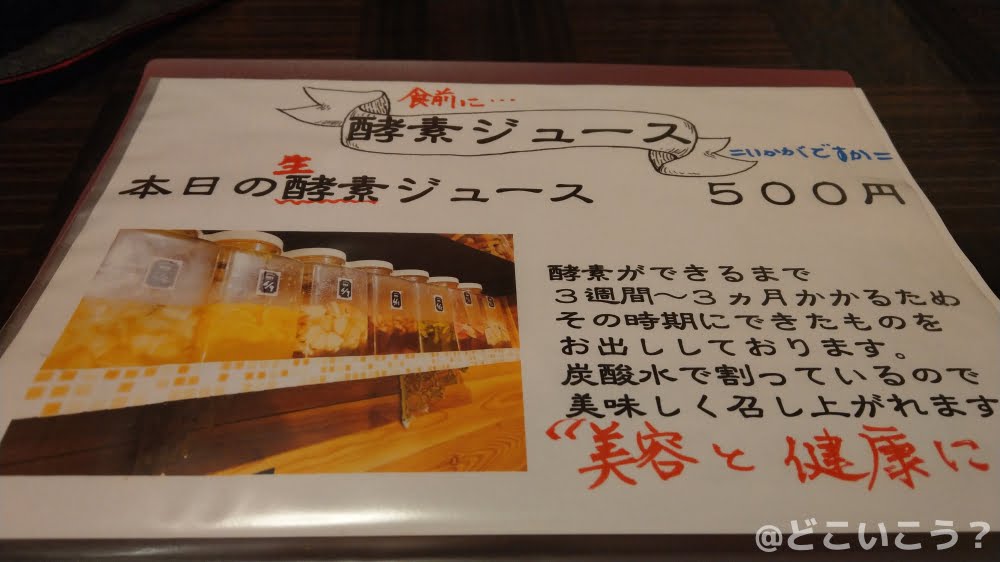 食前に…
酵素ジュース
=いかがですか=
生
本日の酵素ジュース 500円
酵素ができるまで
3週間～3ヵ月かかるため
その時期にできたものを
お出ししております。
炭酸水で割っているので
美味しく召し上がれます
“美容と健康に
@どこいこう？